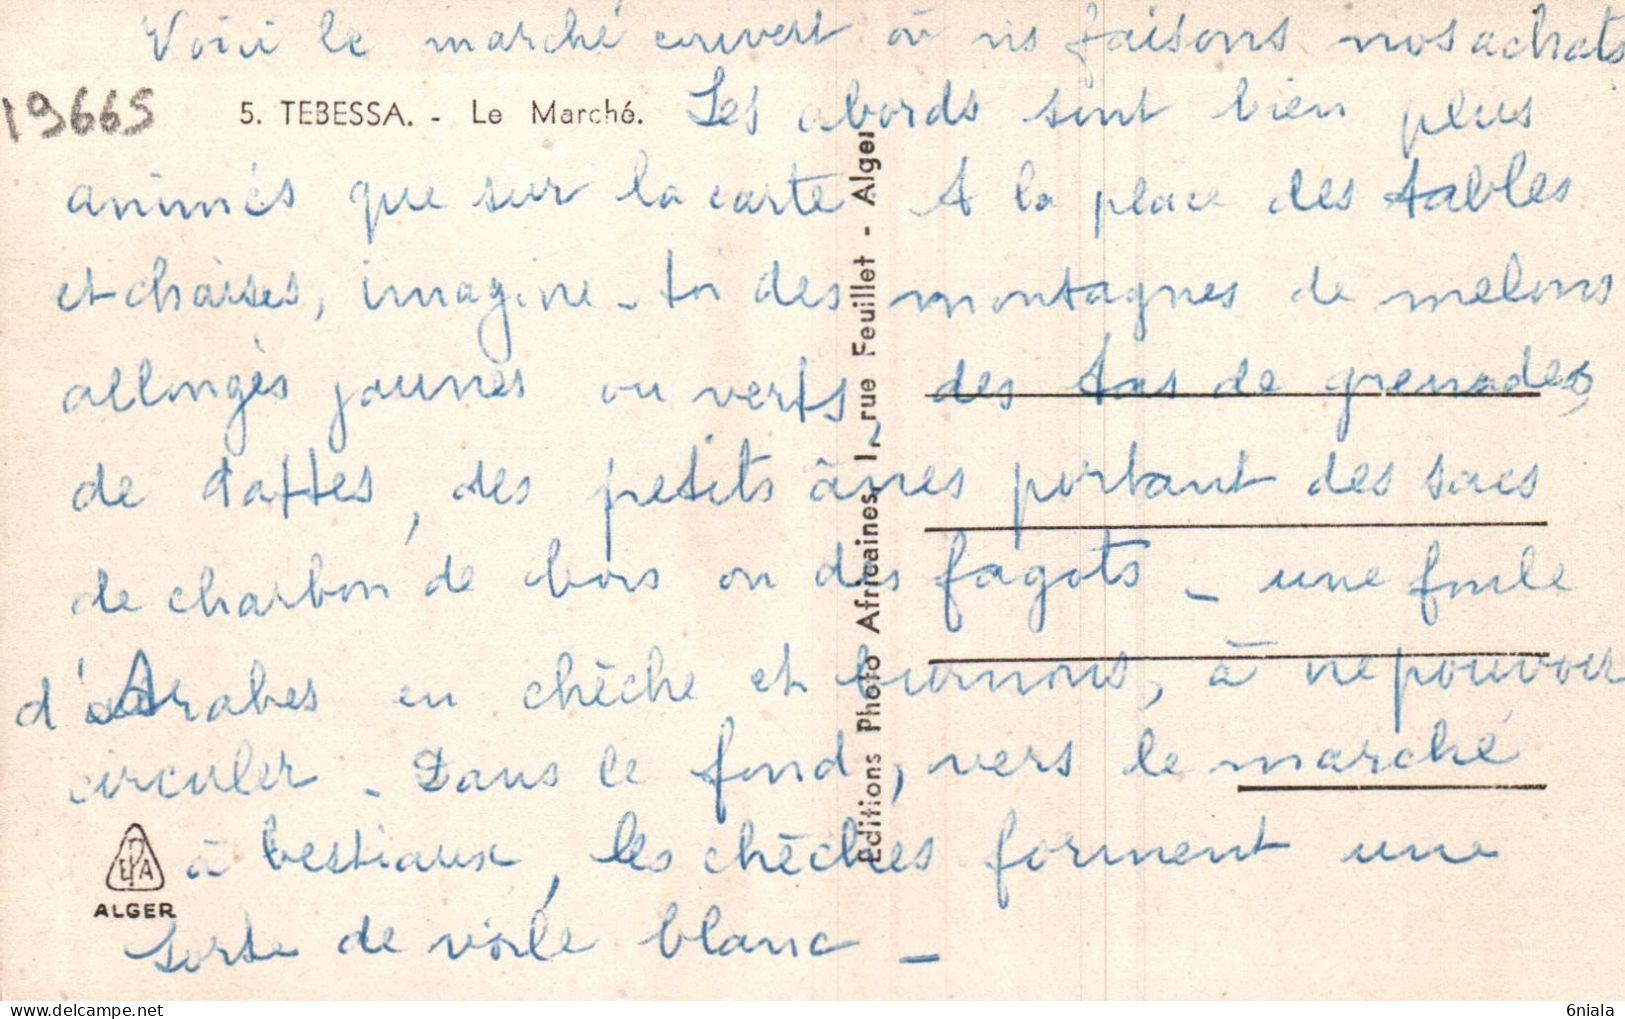 Voici le marché couvert où ns faisons nos achats
19665
5. TEBESSA. - Le Marché.
Les abords sont bien plus
animés que sur la carte. A la place des tables
et chaises, imagine-toi des montagnes de melons
allongés jaunes ou verts, des tas de grenades,
de dattes, des petits ânes portant des sacs
de charbon de bois ou des fagots - une foule
d'Arabes en chèche et burnous, à ne pouvoir
circuler. Dans le fond, vers le marché
à bestiaux, les chèches forment une
sorte de voile blanc -
Editions Photo Africaines, 1, rue Feuillet - Alger
EPA
ALGER
6niala